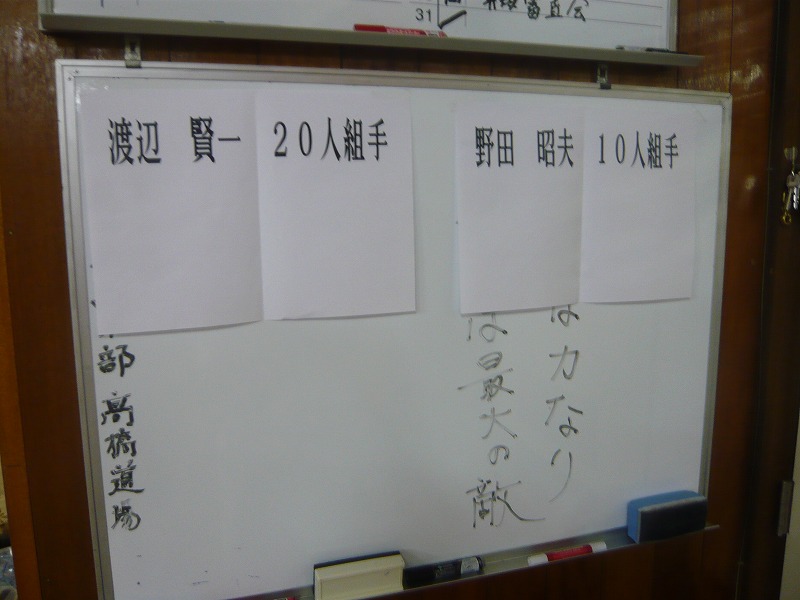 31
渡辺 賢一
20人組手
野田 昭夫
10人組手
は力なり
は最大の敵
部 高橋道場